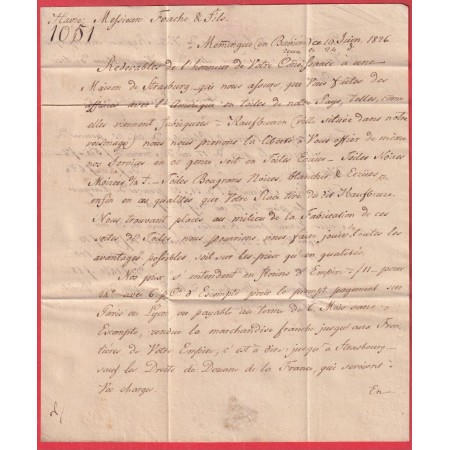 Havre, Messieurs Foache & Fils.
1051
Memingue (en Bavière) ce 10 Juin 1826
Redevables de l'honneur de Votre Connoissance à une
Maison de Strasburg qui nous assure, que Vous faites des
affaires avec l'Amérique en toiles de notre Pays, telles, comme
elles viennent fabriquées à Kaufbeuren (Ville située dans notre
voisinage) nous nous prenons la liberté à Vous offrir de même
nos Services en ce genre soit en Toiles Ecrues – Toiles Noires
Moirées – Toiles Bougrans Noires, blanches & Ecrues &
enfin en qualités que Votre Place tire du dit Kaufbeuren.
Nous trouvant placés au milieu de la Fabrication de ces
sortes de Toiles, nous pourrions vous faire jouir toutes les
avantages possibles, soit sur les prix qu'en qualités.
Nos prix s'entendent en florins d'Empire à f 11 – pour
avec 6 p C.º d'Escompte après le prompt payement sur
Paris ou Lyon, ou payable au terme de 6 Mois sans
Escompte, rendue la marchandise franche jusques aux Fron-
tières de Votre Empire, c'est à dire: jusques à Strasbourg –
sauf les Droits de Douane de la France, qui seroient
Vos charges.
En